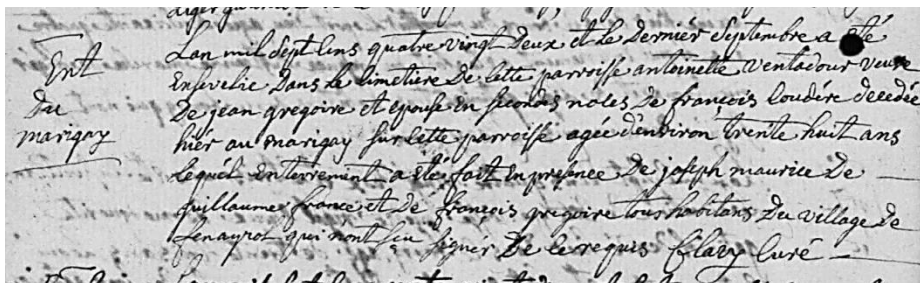 Ent
du
marigay
Lan mil sept cens quatre vingt deux et le dernier septembre a été
Ensevelie dans le cimetiere de cette parroisse antoinette ventadour veuve
De jean gregoire et epouse en secondes noces de françois loudére decedée
hiér au marigay sur cette parroisse agée d'environ trente huit ans
lequél enterrement a été fait en présence de joseph maurice de
guillaume france et de françois gregoire tous habitans du village de
qui nont sçu signér de ce requis Clary Curé